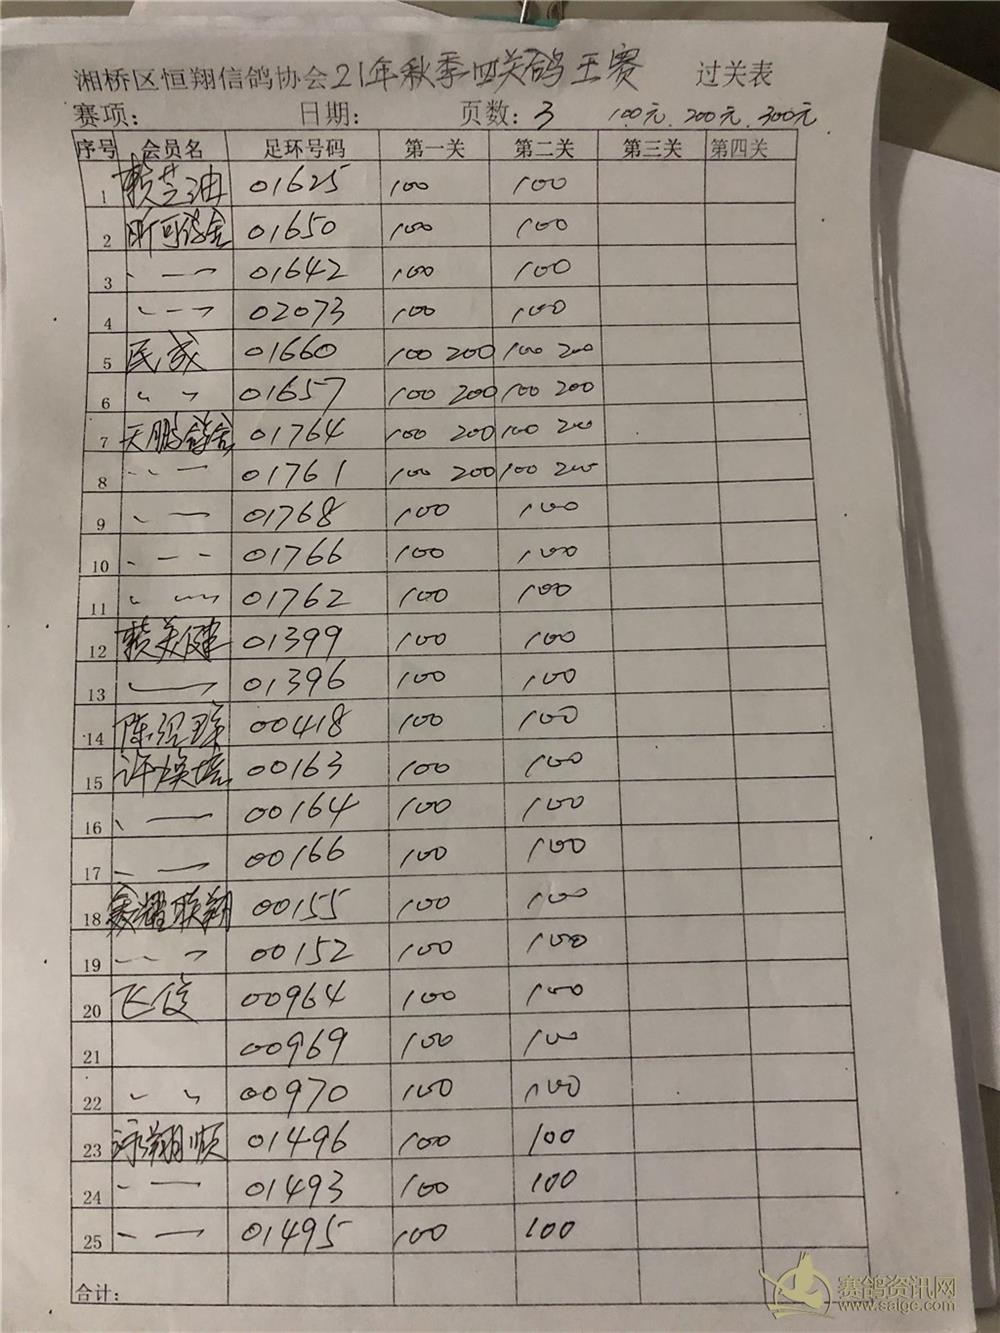 湘桥区恒翔信鸽协会21年秋季四关鸽王赛 过关表
赛项: 日期: 页数: 3 100元.200元.300元
序号 会员名 足环号码 第一关 第二关 第三关 第四关
1 赖芝油 01625 100 100
2 昕可鸽舍 01650 100 100
3 〃 一 01642 100 100
4 〃 一 〃 02073 100 100
5 民成 01660 100 200 100 200
6 〃 〃 01657 100 200 100 200
7 天鹏鸽舍 01764 100 200 100 200
8 〃 一 01761 100 200 100 200
9 〃 一 01768 100 100
10 〃 一 01766 100 100
11 〃 〃 01762 100 100
12 赖美健 01399 100 100
13 〃 〃 01396 100 100
14 陈 00418 100 100
15 许焕培 00163 100 100
16 〃 一 00164 100 100
17 〃 一 00166 100 100
18 耀联翔 00155 100 100
19 〃 〃 00152 100 100
20 飞俊 00964 100 100
21 00969 100 100
22 〃 〃 00970 100 100
23 泳翔顺 01496 100 100
24 〃 一 01493 100 100
25 〃 一 01495 100 100
合计:
赛鸽资讯网
www.saigc.com